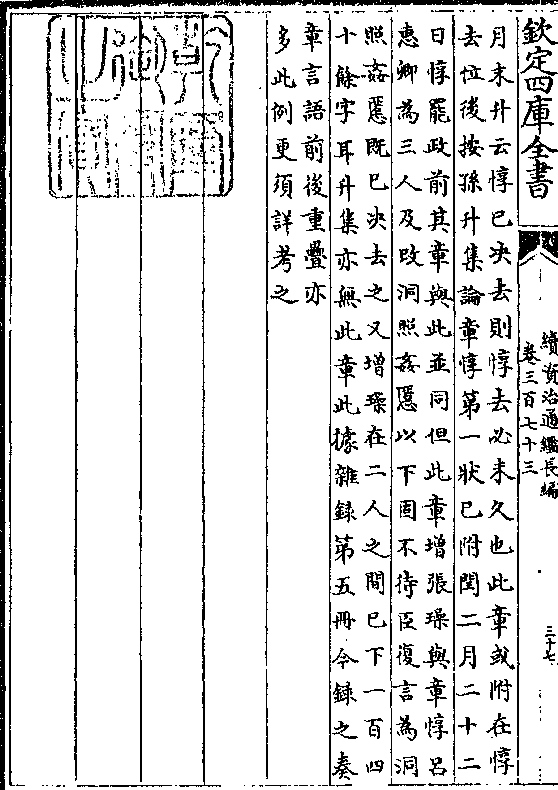 欽定四庫全書
續資治通鑑長編
卷三百七十三
三十七
月末升云惇已决去則惇去必未久也此章或附在惇
去位後按孫升集論章惇第一狀已附閏二月二十二
日惇罷政前其章與此並同但此章增張璪與章惇吕
惠卿為三人及改洞照姦慝以下固不待臣復言為洞
照姦慝既已决去之又增璪在二人之間已下一百四
十餘字耳升集亦無此章此據雜録第五冊今録之奏
章言語前後重疊亦
多此例更須詳考之